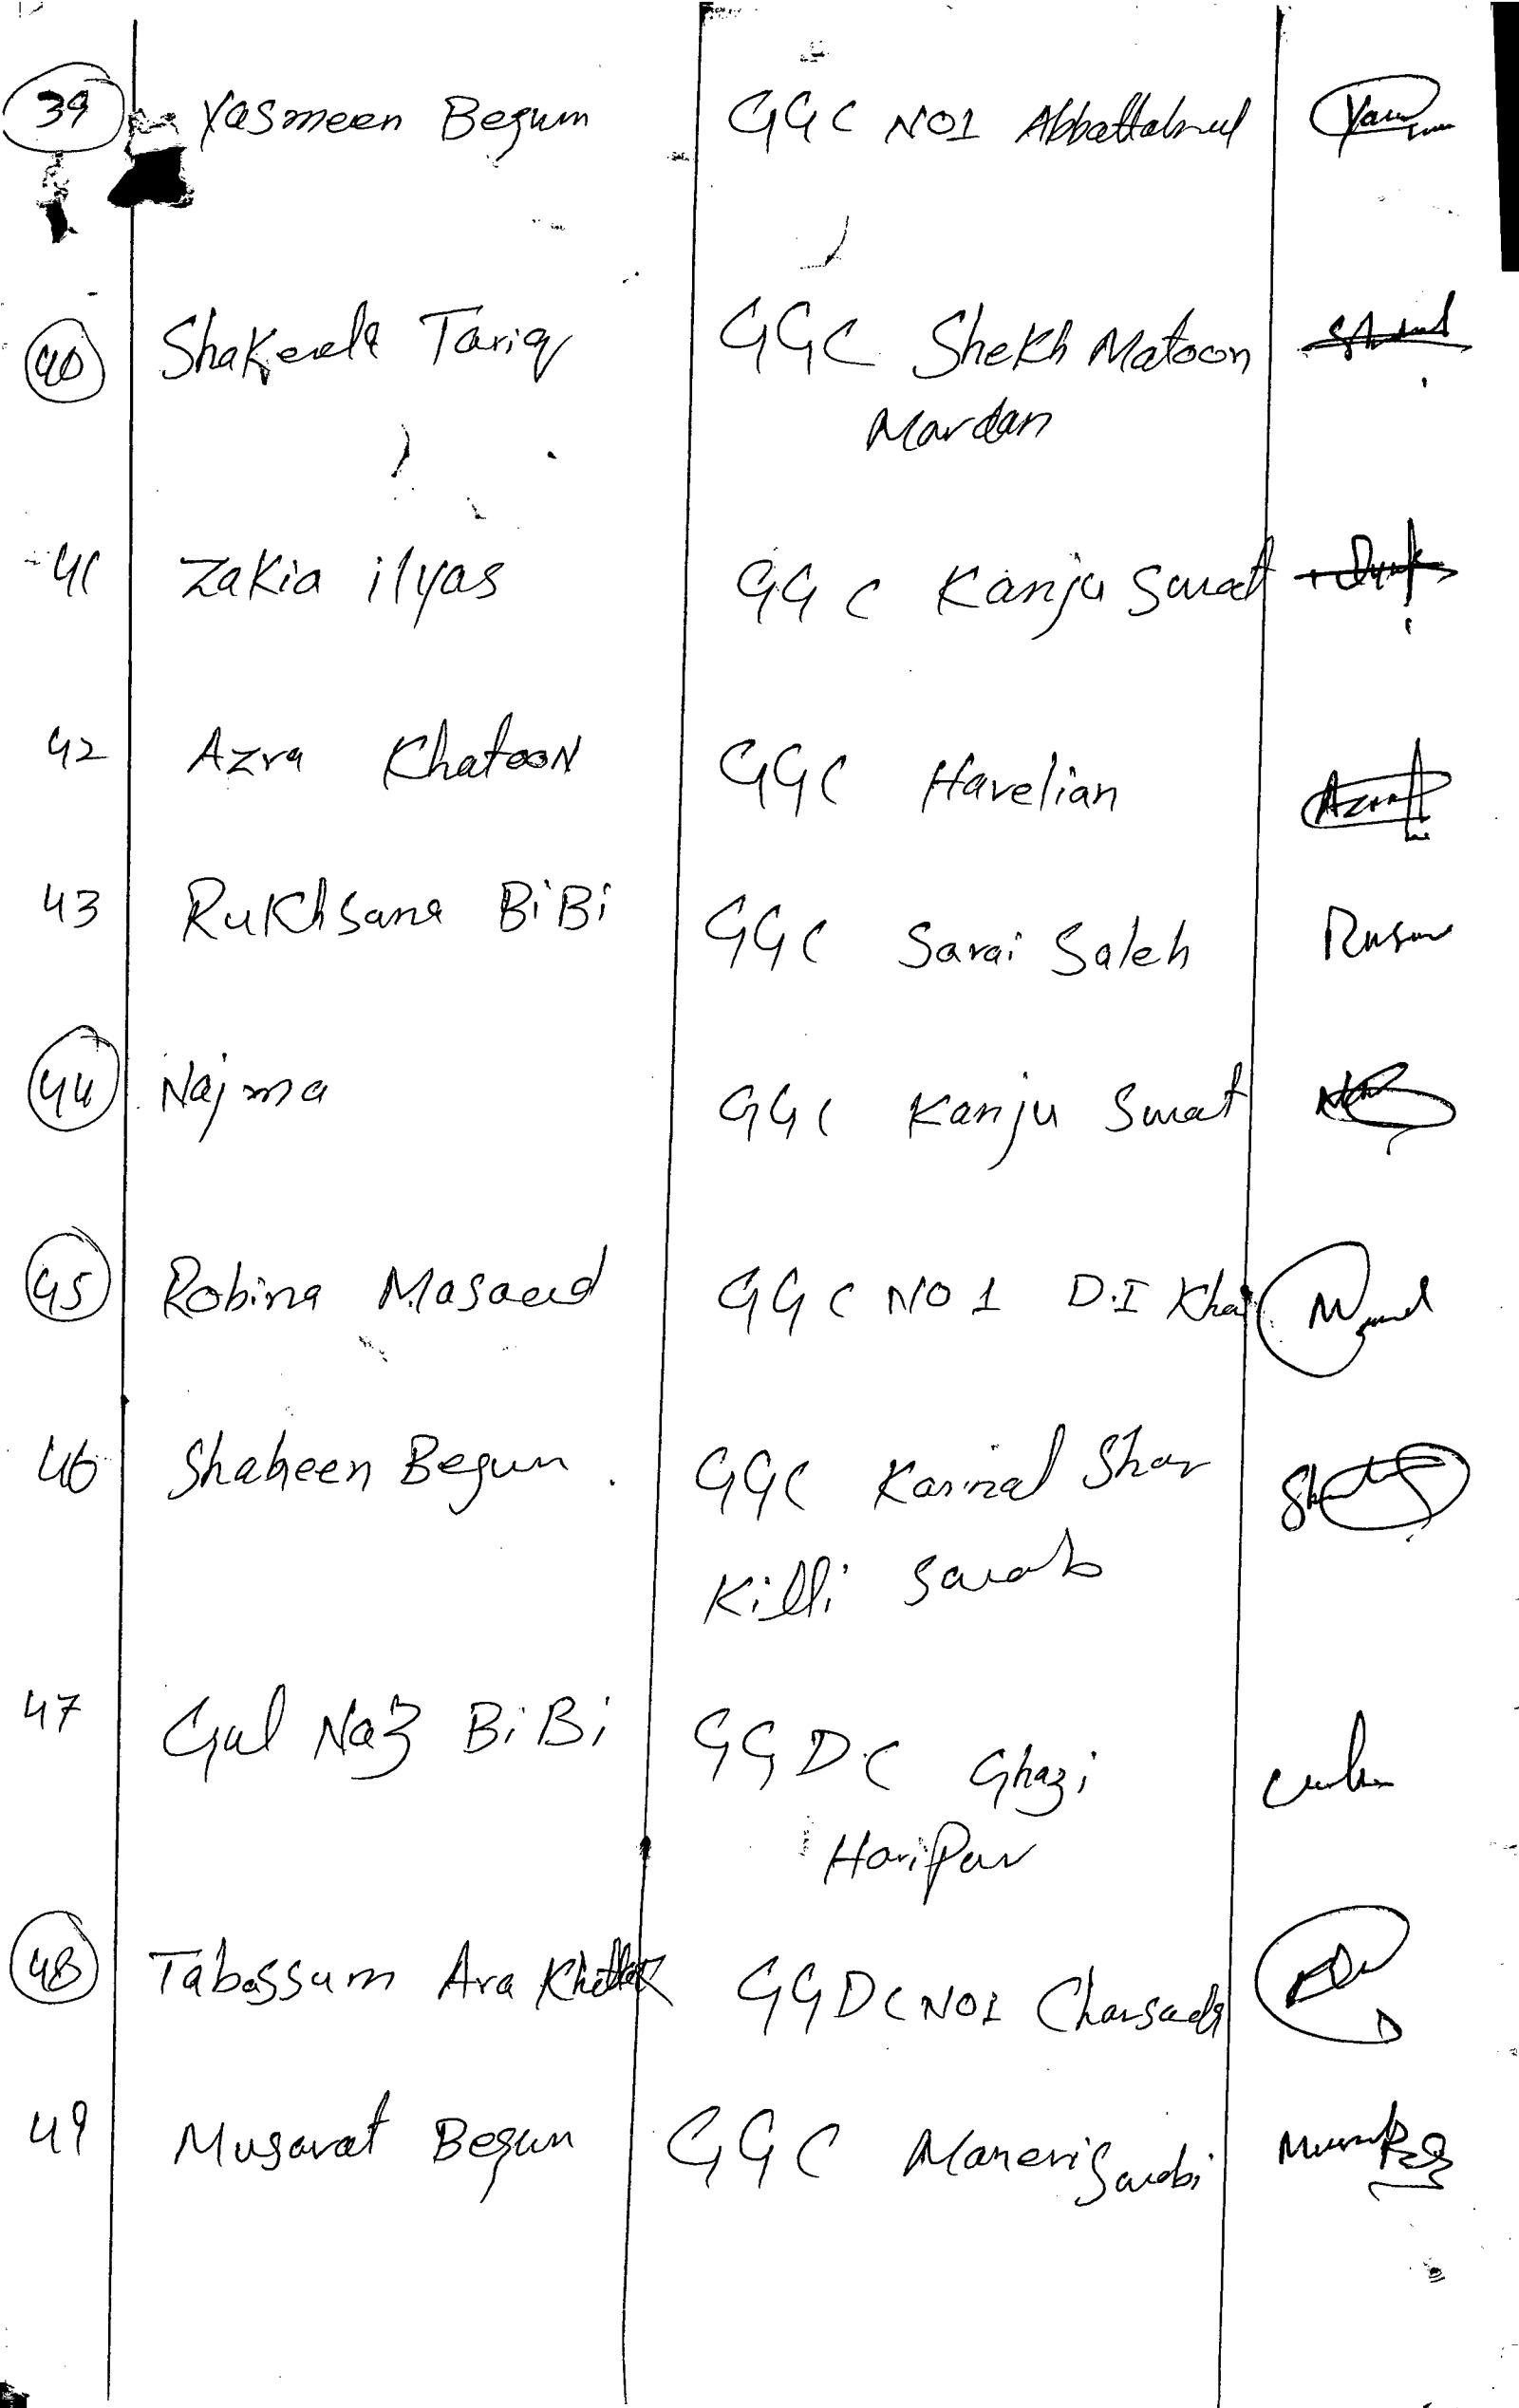 39 Yasmeen Begum GGC NO1 Abbottabad
40 Shakeela Tariq GGC Shekh Matoon
Mardan
41 Zakia ilyas GGC Kanju Swat
42 Azra Khatoon GGC Havelian Azra
43 Rukhsana BiBi GGC Sarai Saleh
44 Najma GGC Kanju Swat
45 Robina Masaud GGC NO 1 D.I Khan
46 Shaheen Begum GGC Karnal Sher
Killi Swabi
47 Gul Naz BiBi GGDC Ghazi
Haripur
48 Tabassum Ara Khattak GGDC NO1 Charsada
49 Musarat Begum GGC Maneri Swabi